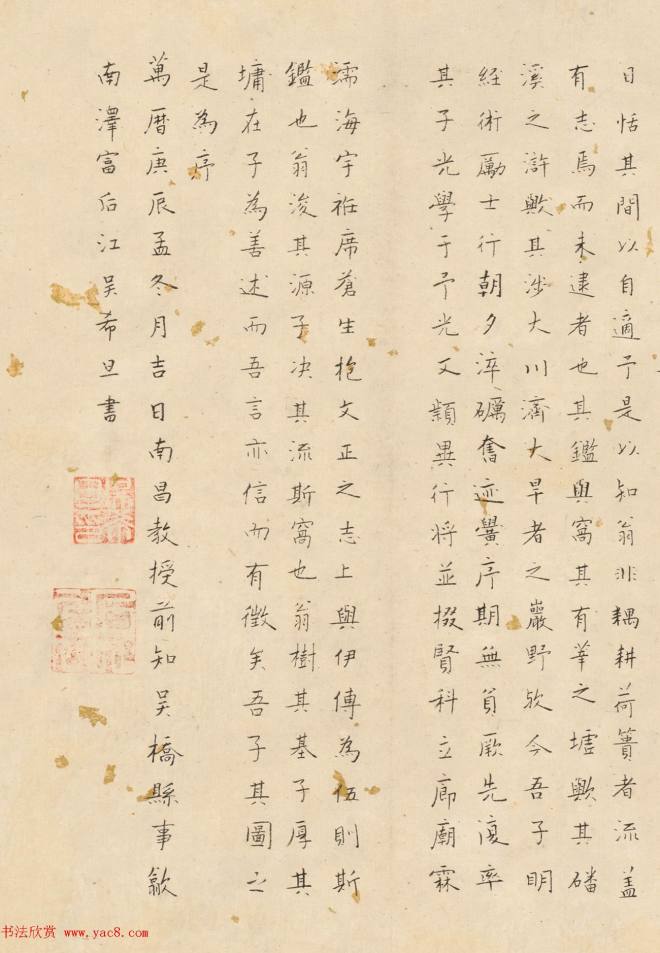 日恬其間以自適于是以知翁非耦耕荷蕢者流盖
有志焉而未逮者也其鑑與窩其有莘之墟歟其磻
溪之滸歟其涉大川濟大旱者之巖野欤今吾子明
经術勵士行朝夕淬礪奮迹黌序期無負厥先复率
其子光學于予光又頴異行将並掇賢科立廊廟霖
濡海宇袵席蒼生抱文正之志上與伊傅為伍則斯
鑑也翁浚其源子决其流斯窩也翁樹其基子厚其
墉在子為善述而吾言亦信而有徵矣吾子其圖之
是為序
萬曆庚辰孟冬月吉日南昌教授前知吴橋縣事歙
南澤富后江吴希旦書
书法欣赏 www.yac8.com